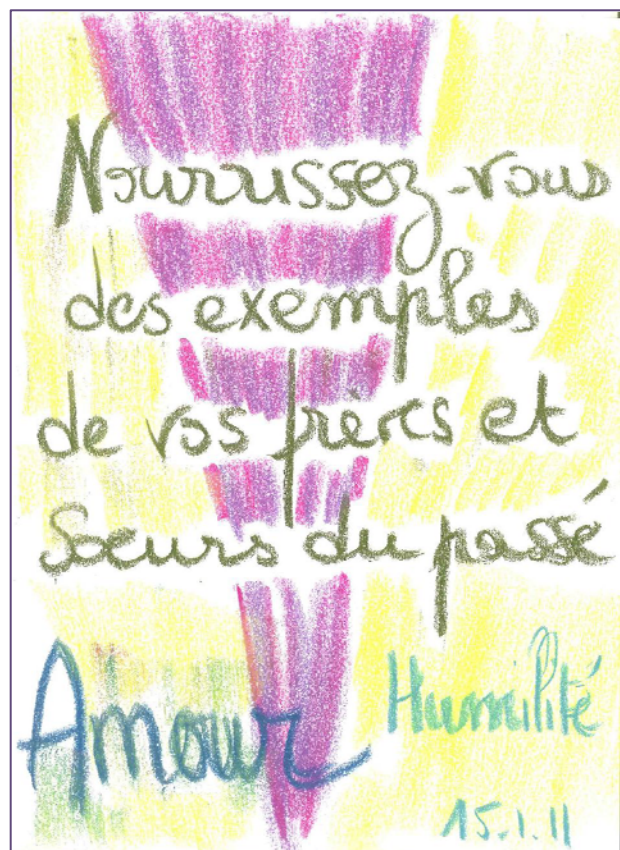 Nourrissez-vous
des exemples
de vos frères et
Soeurs du passé
Amour Humilité
15.1.11